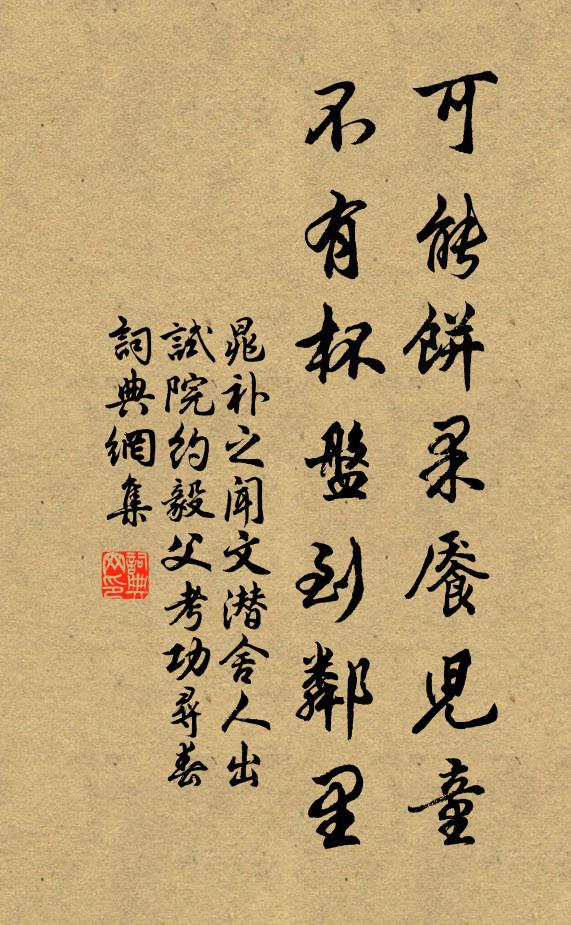 可能餅果饜兒童
不有杯盤到鄰里
晁补之聞文潜舍人出
試院約毅父考功尋春
詞典網集
詞典
网印